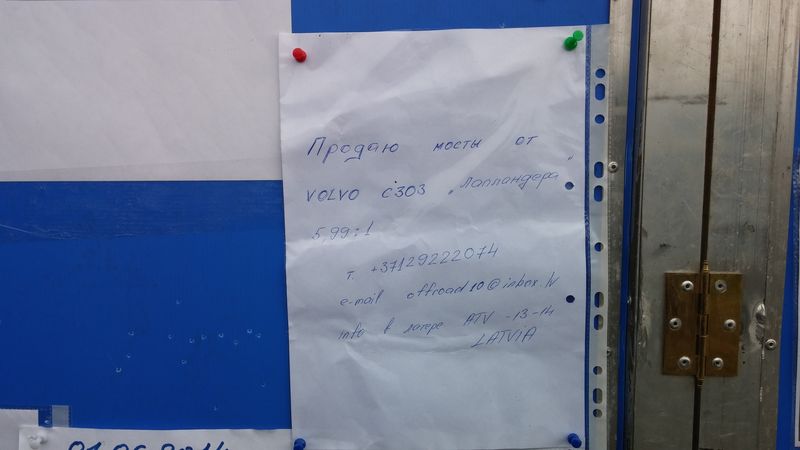 Продаю мосты от
VOLVO C303 „Лапландера"
5,99:1
т. +37129222074
e-mail offroad10@inbox.lv
info в лагере ATV-13-14
LATVIA